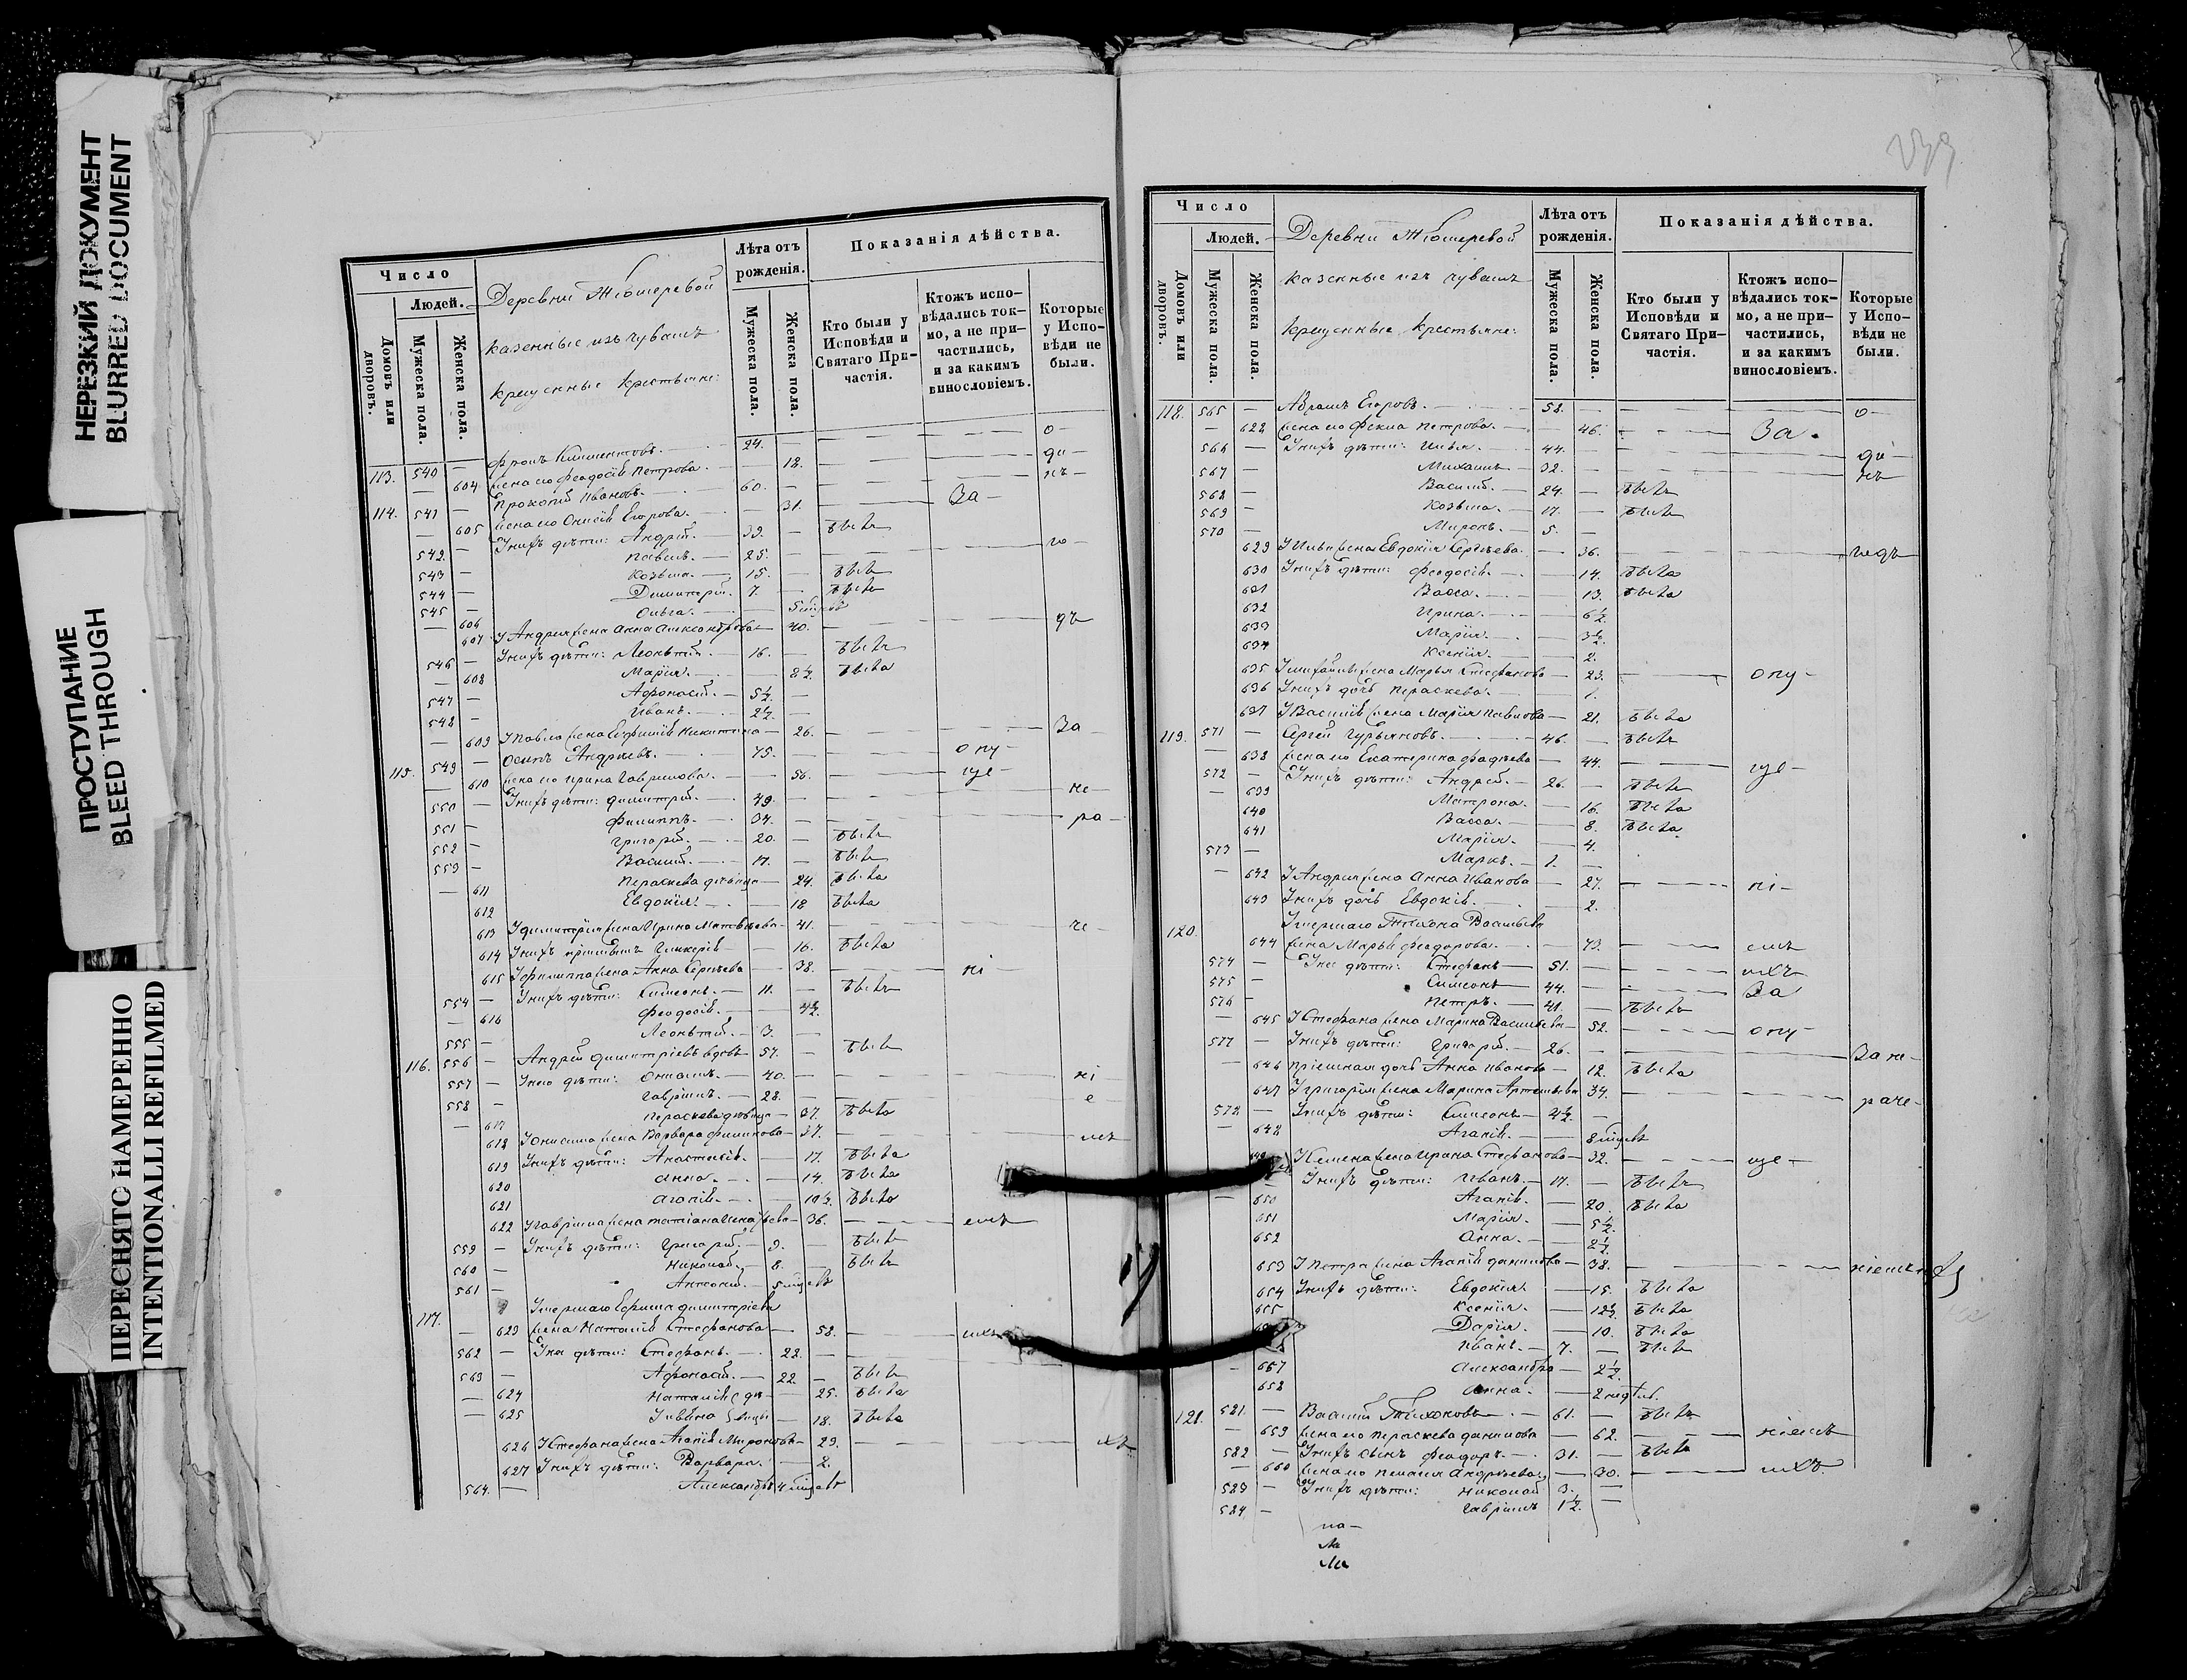 НЕРЕЗКИЙ ДОКУМЕНТ
BLURRED DOCUMENT
ПРОСТУПАНИЕ
BLEED THROUGH
ПЕРЕСНЯТС НАМЕРЕННО
INTENTIONALLI REFILMED
Число
Людей.
Домовъ или дворовъ.
Мужеска пола.
Женска пола.
Деревни Тюмеревой
казенные изъ чувашъ
крещенные крестьяне:
Лѣта отъ рожденія.
Мужеска пола.
Женска пола.
Показанія дѣйства.
Кто были у Исповѣди и Святаго Причастія.
Ктожъ исповѣдались токмо, а не причастились, и за какимъ винословіемъ.
Которые у Исповѣди не были.
113. 540 — Климентовъ. 24. — о-
— 604 жена его Феодосія Петрова. — 18. ди-
114. 541 — Прокопій Ивановъ. 60. — нъ-
— 605 жена его Онисія Егорова. — 31. За-
542 — У нихъ дѣти: Андрей. 39. — бытъ
543 — Павелъ. 25. — го-
544 — Козьма. 15. — бытъ
545 — Димитрій. 7. — бытъ
— 606 Ольга.
607 У Андрея жена Анна Александрова 40. дъ
546 — У нихъ дѣти: Леонтій. 16. — бытъ
— 608 Марія. — 8½ быта
547 — Афонасій. 5½ —
548 — Иванъ. 2½ —
— 609 У Павла жена Евфимія Никитина 26. За
115. 549 — Осипъ Андреевъ. 75. опу-
— 610 жена его Ирина Гаврилова. — 56. ще-
550 — У нихъ дѣти: Димитрій. 49. не-
551 — Филиппъ. 34. ра-
552 — Григорій. 20. — бытъ
553 — Василій. 17. — бытъ
— 611 Параскева дѣвица — 24. быта
612 Евдокія. — 18 быта
613 У Димитрія жена Ирина Матвеева 41. че-
614 У нихъ Гликерія 16. быта
615 У Филиппа жена Анна Сергеева 38. ні
554 — У нихъ дѣти: Симеонъ. 11. — бытъ
— 616 Феодосія. — 4½
555 — Леонтій. 3. —
116. 556 — Андрей Димитріевъ вдовъ 57. — бытъ
557 — У него дѣти: Онисимъ. 40. ні
558 — Гавріилъ. 28. е
— 617 Параскева дѣвица 37. быта
618 У Онисима жена Варвара Филипова 37. мъ
619 У нихъ дѣти: Анастасія. — 17. быта
620 Анна. — 14. быта
621 Агапія. — 10½ быта
622 У Гавріила жена Татіана 36. емъ
559 — У нихъ дѣти: Григорій. 9. — бытъ
560 — Николай. 8. — бытъ
561 — Антоній. 5 мцевъ
117. Умершаго Ефима Димитріева
— 623 жена Наталія Стефанова 58. ихъ
562 — У нея дѣти: Стефанъ. 28.
563 — Афонасій. 22. — бытъ
— 624 Наталія 25. быта
— 625 18. быта
626 У Стефана жена Агапія Миронова 29. хъ
627 У нихъ дѣти: Варвара. 2.
564. — Александръ 4 мцевъ
239
Число
Людей.
Домовъ или дворовъ.
Мужеска пола.
Женска пола.
Деревни Тюмеревой
казенные изъ чувашъ
крещенные крестьяне:
Лѣта отъ рожденія.
Мужеска пола.
Женска пола.
Показанія дѣйства.
Кто были у Исповѣди и Святаго Причастія.
Ктожъ исповѣдались токмо, а не причастились, и за какимъ винословіемъ.
Которые у Исповѣди не были.
118. 565 — Абрамъ Егоровъ. 58. — о-
— 628 жена его Фекла Петрова. — 46. За.
566 — У нихъ дѣти: Илья. 44. — ди-
567 — Михаилъ 32. — нъ
568 — Василій. 24. — бытъ
569 — Козьма. 17. — бытъ
570 — Миронъ. 5. —
629 У Ильи жена Евдокія Сергеева. — 36. годъ
630 У нихъ дѣти: Феодосія. — 14. быта
631 Васса. 13. быта
632 Ирина. 6½
633 Марія. 3½
634 Ксенія. 2.
635 У Михаила жена Марья Стефанова 23. опу-
636 У нихъ дочь Параскева. 1.
637 У Василія жена Марія Павлова 21. быта
119. 571 — Сергей Гурьяновъ. 46. — бытъ
— 638 жена его Екатерина Фадеева 44. ще-
572 — У нихъ дѣти: Андрей. 26. — бытъ
— 639 Матрона. 16. быта
640 Васса. 8. быта
641 Марія. 4.
573 — Маркъ. 1. —
— 642 У Андрея жена Анна Иванова 27. ні-
643 У нихъ дочь Евдокія. 2.
120. Умершаго Тихона Васильева
644 жена Марья Феодорова. 73. емъ
574 — У нея дѣти: Стефанъ 51. ихъ
575 — Симеонъ 44. За
576 — Петръ. 41. — бытъ
— 645 У Стефана жена Марина Васильева 52. опу-
577 — У нихъ дѣти: Григорій. 26. За не-
— 646 пріемная дочь Анна Иванова 12. быта
647 У Григорія жена Марина Артемьева 34. раче-
578 — У нихъ дѣти: Симеонъ 4½ —
— 648 Агапія. 8 мцевъ
649 У Семена жена Ирина Стефанова 32. ще-
— У нихъ дѣти: Иванъ. 17. — бытъ
650 Агапія. 20. быта
651 Марія. 5½
652 Анна. 2½
653 У Петра жена Агапія Данилова 38. ніемъ
654 У нихъ дѣти: Евдокія 15. быта
655 Ксенія. 12½ быта
Дарія. 10. быта
Иванъ. 7. — бытъ
— 657 Александра 2½
658 Анна. 2 недѣль.
121. 581. — Василій Тихоновъ 61. — бытъ
— 659 жена его Параскева Данилова 62. ніемъ
582 — У нихъ сынъ Феодоръ. 31. — бытъ
— 660 жена его Пелагія Андреева 30. ихъ
583 — У нихъ дѣти: Николай 3. —
584 — Гавріилъ 1½ —